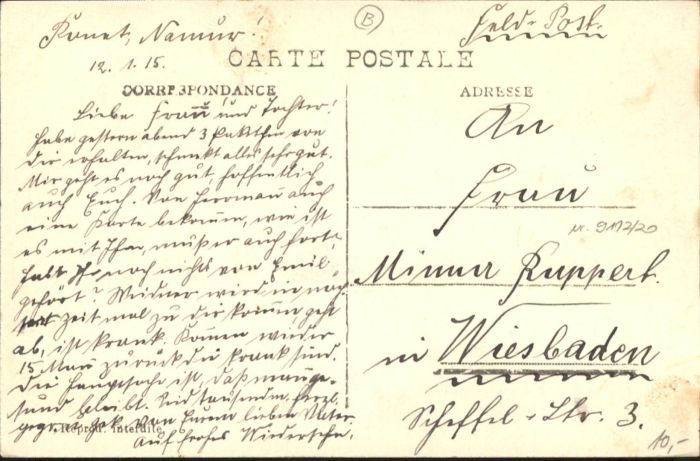 Ronet, Namur!
12. 1. 15.
B
Feld-Post.
CARTE POSTALE
CORRESPONDANCE
Liebe Frau und Tochter!
Habe gestern abend 3 Paketchen von
Dir erhalten, schmekt alles sehr gut.
Mir geht es noch gut, hoffentlich
auch Euch. Von Hermann auch
eine Karte bekommen, wie ist
es mit Ihm, muß er auch fort?
Habt Ihr noch nichts von Emil
gehört? Weidner wird
Zeit mal zu Dir kommen, geht
ab, ist krank. Kommen wieder
15 Mann zurück die krank sind.
Die Hauptsache ist, daß man ge-
sund bleibt. Seid tausendm. herzl.
gegrüßt Von Eurem lieben Vater
Auf frohes Wiedersehn.
Reprod. interdite
ADRESSE
An
Frau
nr. 9117/20
Minna Ruppert.
in Wiesbaden
Scheffel-Str. 3.
10,-